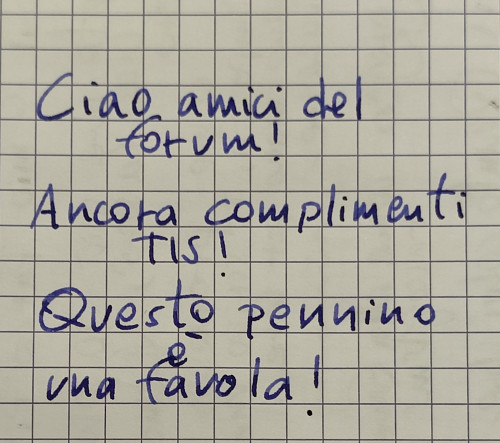 Ciao amici del
forum!
Ancora complimenti
TIS!
Questo pennino
è
una favola!